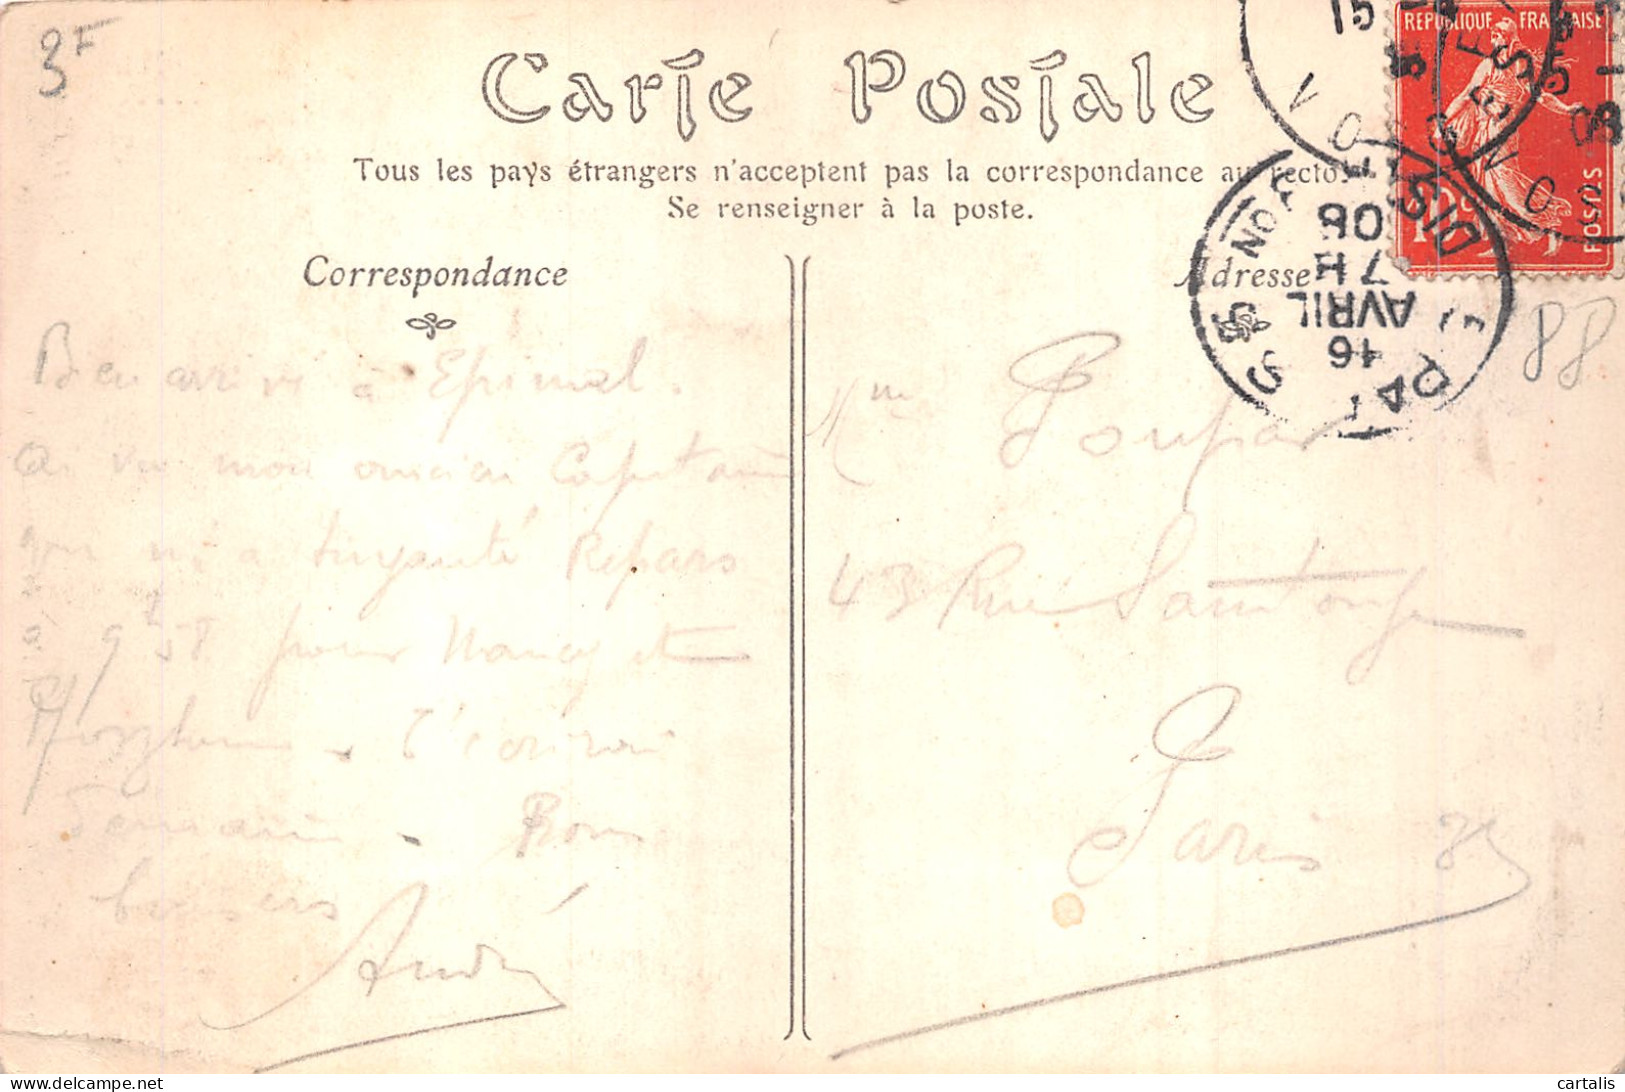 3F
Carte Postale
Tous les pays étrangers n'acceptent pas la correspondance au recto.
Se renseigner à la poste.
REPUBLIQUE FRANÇAISE
POSTES
10c
15
VOSGES
VOSGES
16
AVRIL
7H
06
Correspondance
Adresse
88
Bien arrivé à Epinal.
Ai vu mon ancien Capitaine
qui m'a Repars
9h58 pour Nancy et
T'écrirai
demain - Bons
baisers
André
Mme Poupar
43 Rue Saintonge
Paris
cartalis
delcampe.net